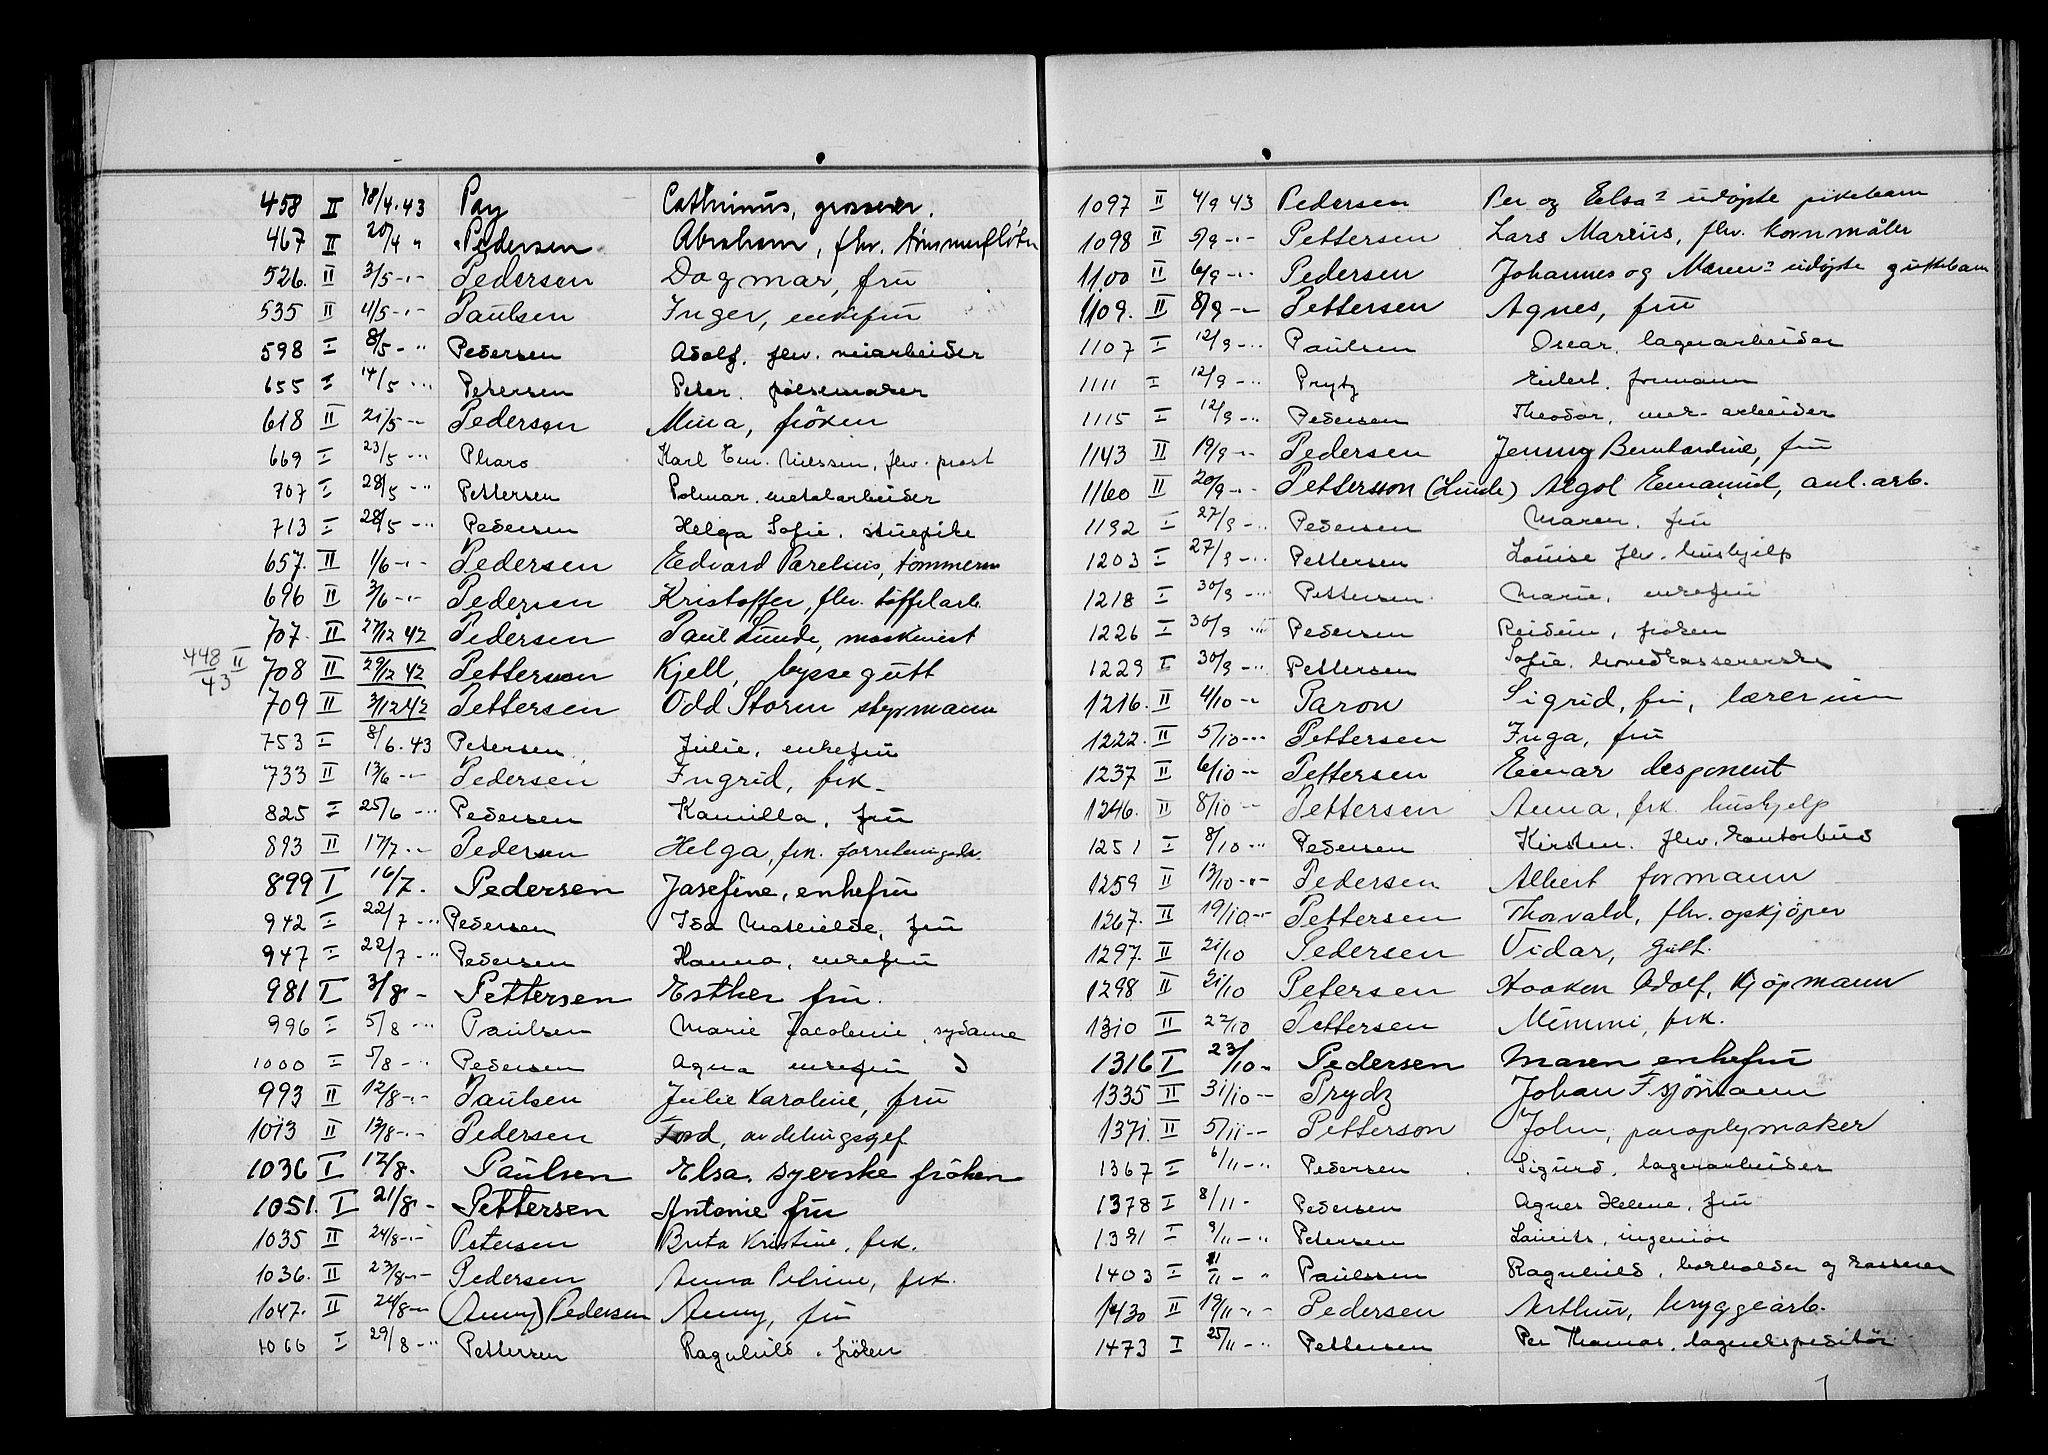 458 II 18/4.43 Pay Cathrinus, grosserer.
467 II 20/4 " Pedersen Abraham, fhv. tømmerfløter
526. II 3/5 -"- Pedersen Dagmar, fru
535 II 4/5 -"- Paulsen Inger, enkefru
598 I 8/5 - " Pedersen Adolf. fhv. meiarbeider
655 I 14/5 - " Petersen Peter. pølsemaker
618 II 21/5 -"- Pedersen Mina, frøken
669 I 23/5 - " Pharo Karl Em. Nilssen, fhv. prost
707 I 28/5 - " Pettersen Polmar. metalarbeider
713 I 28/5 - " Pedersen Helga Sofie. stuepike
657. II 1/6 -"- Pedersen Edvard Parelius, tømmerm
696 II 3/6 -"- Pedersen Kristoffer, fhv. tøffelarb.
707. II 27/12 42 Pedersen Paul Lunde, maskinist
448 II/43 708 II 29/12 42 Pettersen Kjell, byssegutt
709 II 3/12 42 Pettersen Odd Storm styrmann
753 I 8/6.43 Petersen Julie, enkefru
733 II 13/6 -"- Pedersen Ingrid, frk.
825 I 25/6 - " Pedersen Kamilla, fru
893 II 17/7 -"- Pedersen Helga, frk. forretningsdr.
899 I 16/7. Pedersen Josefine, enkefru
942 I 22/7 - " Pedersen Ida Mathilde, fru
947 I 22/7 - " Pedersen Hanna, enkefru
981 I 3/8 - Pettersen Esther fru.
996 I 5/8 - " Paulsen Marie Jacobine, sydame
1000 I 5/8 - " Pedersen Agna enkefru
993 II 12/8 -"- Paulsen Julie Karoline, fru
1013 II 13/8 -"- Pedersen Tord, avdelingssjef
1036 I 17/8. Paulsen Elsa. syerske frøken
1051. I 21/8 - Pettersen Antonie fru
1035 II 24/8 -"- Petersen Brita Kristine, frk.
1036. II 23/8 -"- Pedersen Anna Petrine, frk.
1047. II 24/8 -"- (Anny) Pedersen Anny, fru
1066 I 29/8 - " Pettersen Ragnhild. frøken
1097 II 4/9 43 Pedersen Per og Elsa's udøpte pikebarn
1098 II 5/9 -"- Pettersen Lars Marius, fhv. kornmåler
1100 II 6/9 -"- Pedersen Johannes og Maren's udøpte guttebarn
1109. II 8/9 -"- Pettersen Agnes, fru
1107 I 12/9 - " Paulsen Oscar. lagerarbeider
1111 I 12/9 - " Prytz Eilert. formann
1115 I 12/9 - " Pedersen Theodor, mek. arbeider
1143 II 19/9 -"- Pedersen Jenny Bernhardine, fru
1160 II 20/9 -"- Pettersson (Linde) Algot Emanuel, anl. arb.
1192 I 27/9 - " Pedersen Maren. fru
1203 I 27/9 - " Pettersen Louise fhv. hushjelp
1218 I 30/9 - " Pettersen Marie, enkefru
1226 I 30/9 " Pedersen Reidun, frøken
1229 I 30/9 - " Pettersen Sofie. hovedkassererske
1216. II 4/10 -"- Paron Sigrid, fru, lærerinne
1222. II 5/10 -"- Pettersen Inga, fru
1237 II 6/10 -"- Pettersen Einar disponent
1246. II 8/10 -"- Pettersen Anna, frk. hushjelp
1251 I 8/10 - " Pedersen Kirsten. fhv. kontorbud
1259 II 13/10 -"- Pedersen Albert formann
1267. II 19/10 -"- Pettersen Thorvald, fhv. opkjøper
1297. II 21/10 Pedersen Vidar, gutt.
1298 II 21/10 Petersen Haakon Adolf, kjøpmann
1310 II 22/10 Pettersen Mimmi, frk.
1316 I 23/10 " Pedersen Maren enkefru
1335 II 31/10 -- Prydz Johan F. sjømann
1371. II 5/11 -- Petterson John, paraplymaker
1367 I 6/11 - " Pedersen Sigurd, lagerarbeider
1378 I 8/11 - Pedersen Agnes Helene, fru
1391 I 9/11 - " Petersen Lauritz, ingeniør
1403 I 11/11 - " Paulssen Ragnhild, bokholder og kasserer
1430 II 19/11 -"- Pedersen Arthur, bryggearb.
1473 I 25/11 - " Pettersen Per Thomas, lagerekspeditør